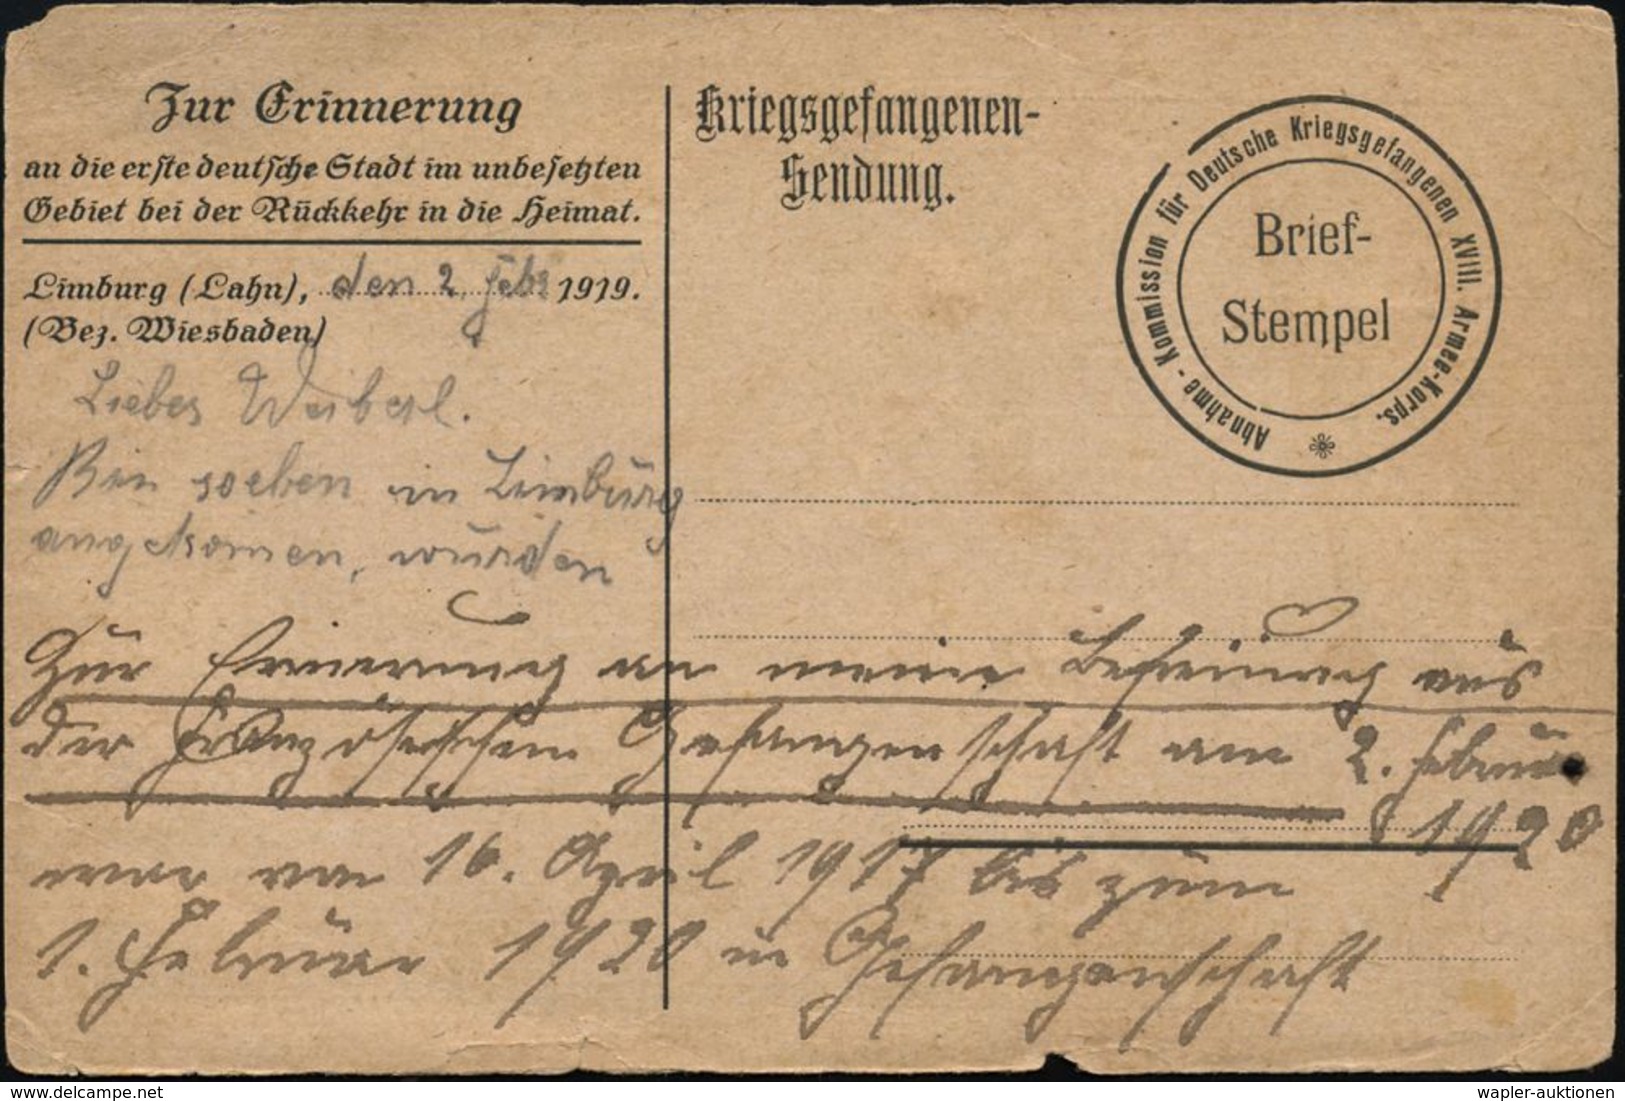 Zur Erinnerung
an die erste deutsche Stadt im unbesetzten
Gebiet bei der Rückkehr in die Heimat.
Limburg (Lahn), den 2. Febr 1919.
(Bez. Wiesbaden)
Liebes Weiberl.
Bin soeben in Limburg
angekomen, wurden
Kriegsgefangenen-
Sendung.
Abnahme-Kommission für Deutsche Kriegsgefangenen XVIII. Armee-Korps.
Brief-
Stempel
Zur Erinerung an meine Befreiung aus
der französischen Gefangenschaft am 2. Februar
1920
war von 16. April 1917 bis zum
1. Februar 1920 in Gefangenschaft
Delcampe.net
wapler-auktionen